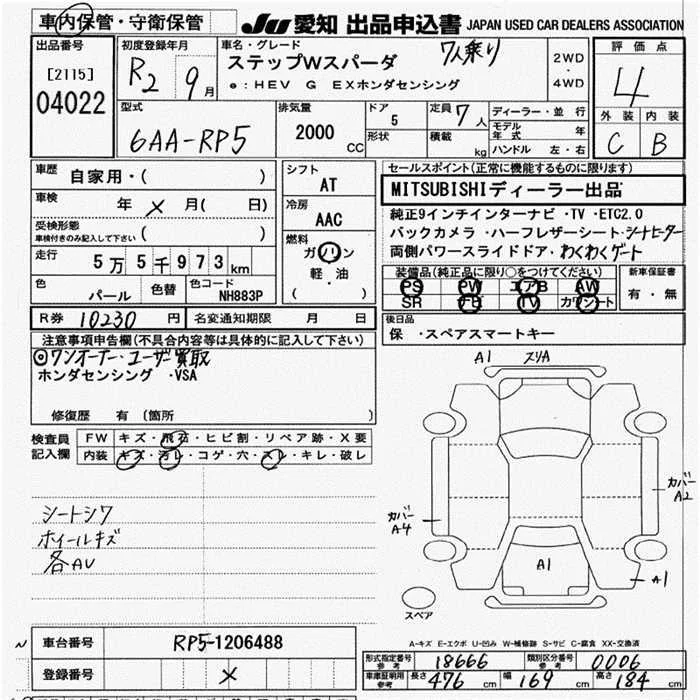 車内保管・守衛保管 JU 愛知 出品申込書 JAPAN USED CAR DEALERS ASSOCIATION
出品番号 初度登録年月 車名・グレード 7人乗り 評価点
[2115] 04022 R2 9月 ステップWスパーダ 2WD・4WD 4
e:HEV G EXホンダセンシング
外装 内装
C B
型式 6AA-RP5 排気量 2000 CC ドア 5 形状 定員 7人 積載 kg ディーラー・並行
モデル年式 年
ハンドル 左・右
車歴 自家用・( ) シフト AT セールスポイント(正常に機能するものに限ります)
MITSUBISHIディーラー出品
車検 年 × 月( 日) 冷房 AAC
純正9インチインターナビ・TV・ETC2.0
受検形態 車検付きのみ記入して下さい ( )
バックカメラ・ハーフレザーシート・シートヒーター
燃料 ガソリン 軽・油 ( )
両側パワースライドドア・わくわくゲート
走行 5万5千973km
装備品(純正品に限り○をつけてください) 新車保証書
PS PW エアB AW 有・無
SR FD TV カワシート
色 パール 色替 色コード NH883P
R券 10230 円 名変通知期限 月 日
後日品
保 ・スペアスマートキー
注意事項申告欄(不具合内容等は具体的に記入して下さい)
◎ワンオーナー・ユーザー買取
ホンダセンシング ・VSA
修復歴 有(箇所 )
検査員記入欄 FW キズ・飛石・ヒビ割・リペア跡・X要
内装 キズ・汚レ・コゲ・穴・スレ・キレ・破レ
シートシワ
ホイールキズ
各AU
A1 スリA
カバーA4
カバーA2
A1
A1
スペア
A-キズ E-エクボ U-凹み W-補修跡 S-サビ C-腐食 XX-交換済
車台番号 RP5-1206488
登録番号 ×
形式指定番号 参考 18666 類別区分番号 参考 0006
車庫証明用 参考 長さ 476 cm 幅 169 cm 高さ 184 cm